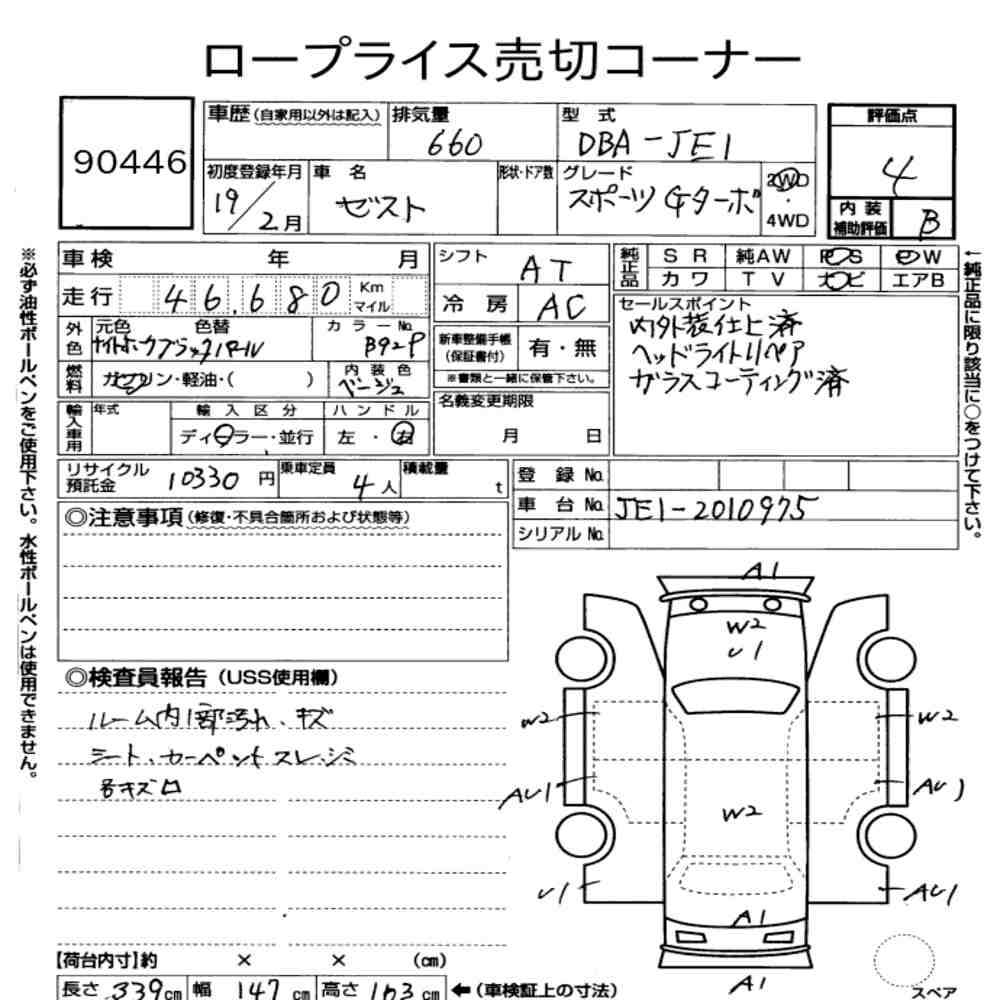 ロープライス売切コーナー
90446
車歴(自家用以外は記入)
排気量
660
型 式
DBA-JE1
評価点
4
初度登録年月
19/2月
車 名
ゼスト
形状・ドア数
グレード
スポーツGターボ
2WD
・
4WD
内 装
補助評価
B
※必ず油性ボールペンをご使用下さい。水性ボールペンは使用できません。
車検 年 月
走行 46,680 Km
マイル
外色
元色 色替
ナイトホークブラックパール
カラーNo.
B92P
燃料
ガソリン・軽油・( )
内装色
ベージュ
輸入車用
年式
輸入区分
ディーラー・並行
ハンドル
左・右
シフト
AT
冷 房
AC
新車整備手帳
(保証書付)
有・無
※書類と一緒に保管下さい。
名義変更期限
月 日
純正品
SR 純AW PS PW
カワ TV ナビ エアB
セールスポイント
内外装仕上済
ヘッドライトリペア
ガラスコーティング済
←純正品に限り該当に○をつけて下さい。
リサイクル
預託金
10330 円
乗車定員
4人
積載量
t
登 録 No.
車 台 No.
JE1-2010975
シリアル No.
◎注意事項(修復・不具合箇所および状態等)
◎検査員報告(USS使用欄)
ルーム内1部汚れ、キズ
シート、カーペットスレ、シミ
各キズ凹
A1
W2
U1
W2
W2
AU1
AU1
W2
U1
AU1
A1
A1
スペア
【荷台内寸】約 × × (cm)
長さ 339cm 幅 147cm 高さ 163cm ←(車検証上の寸法)